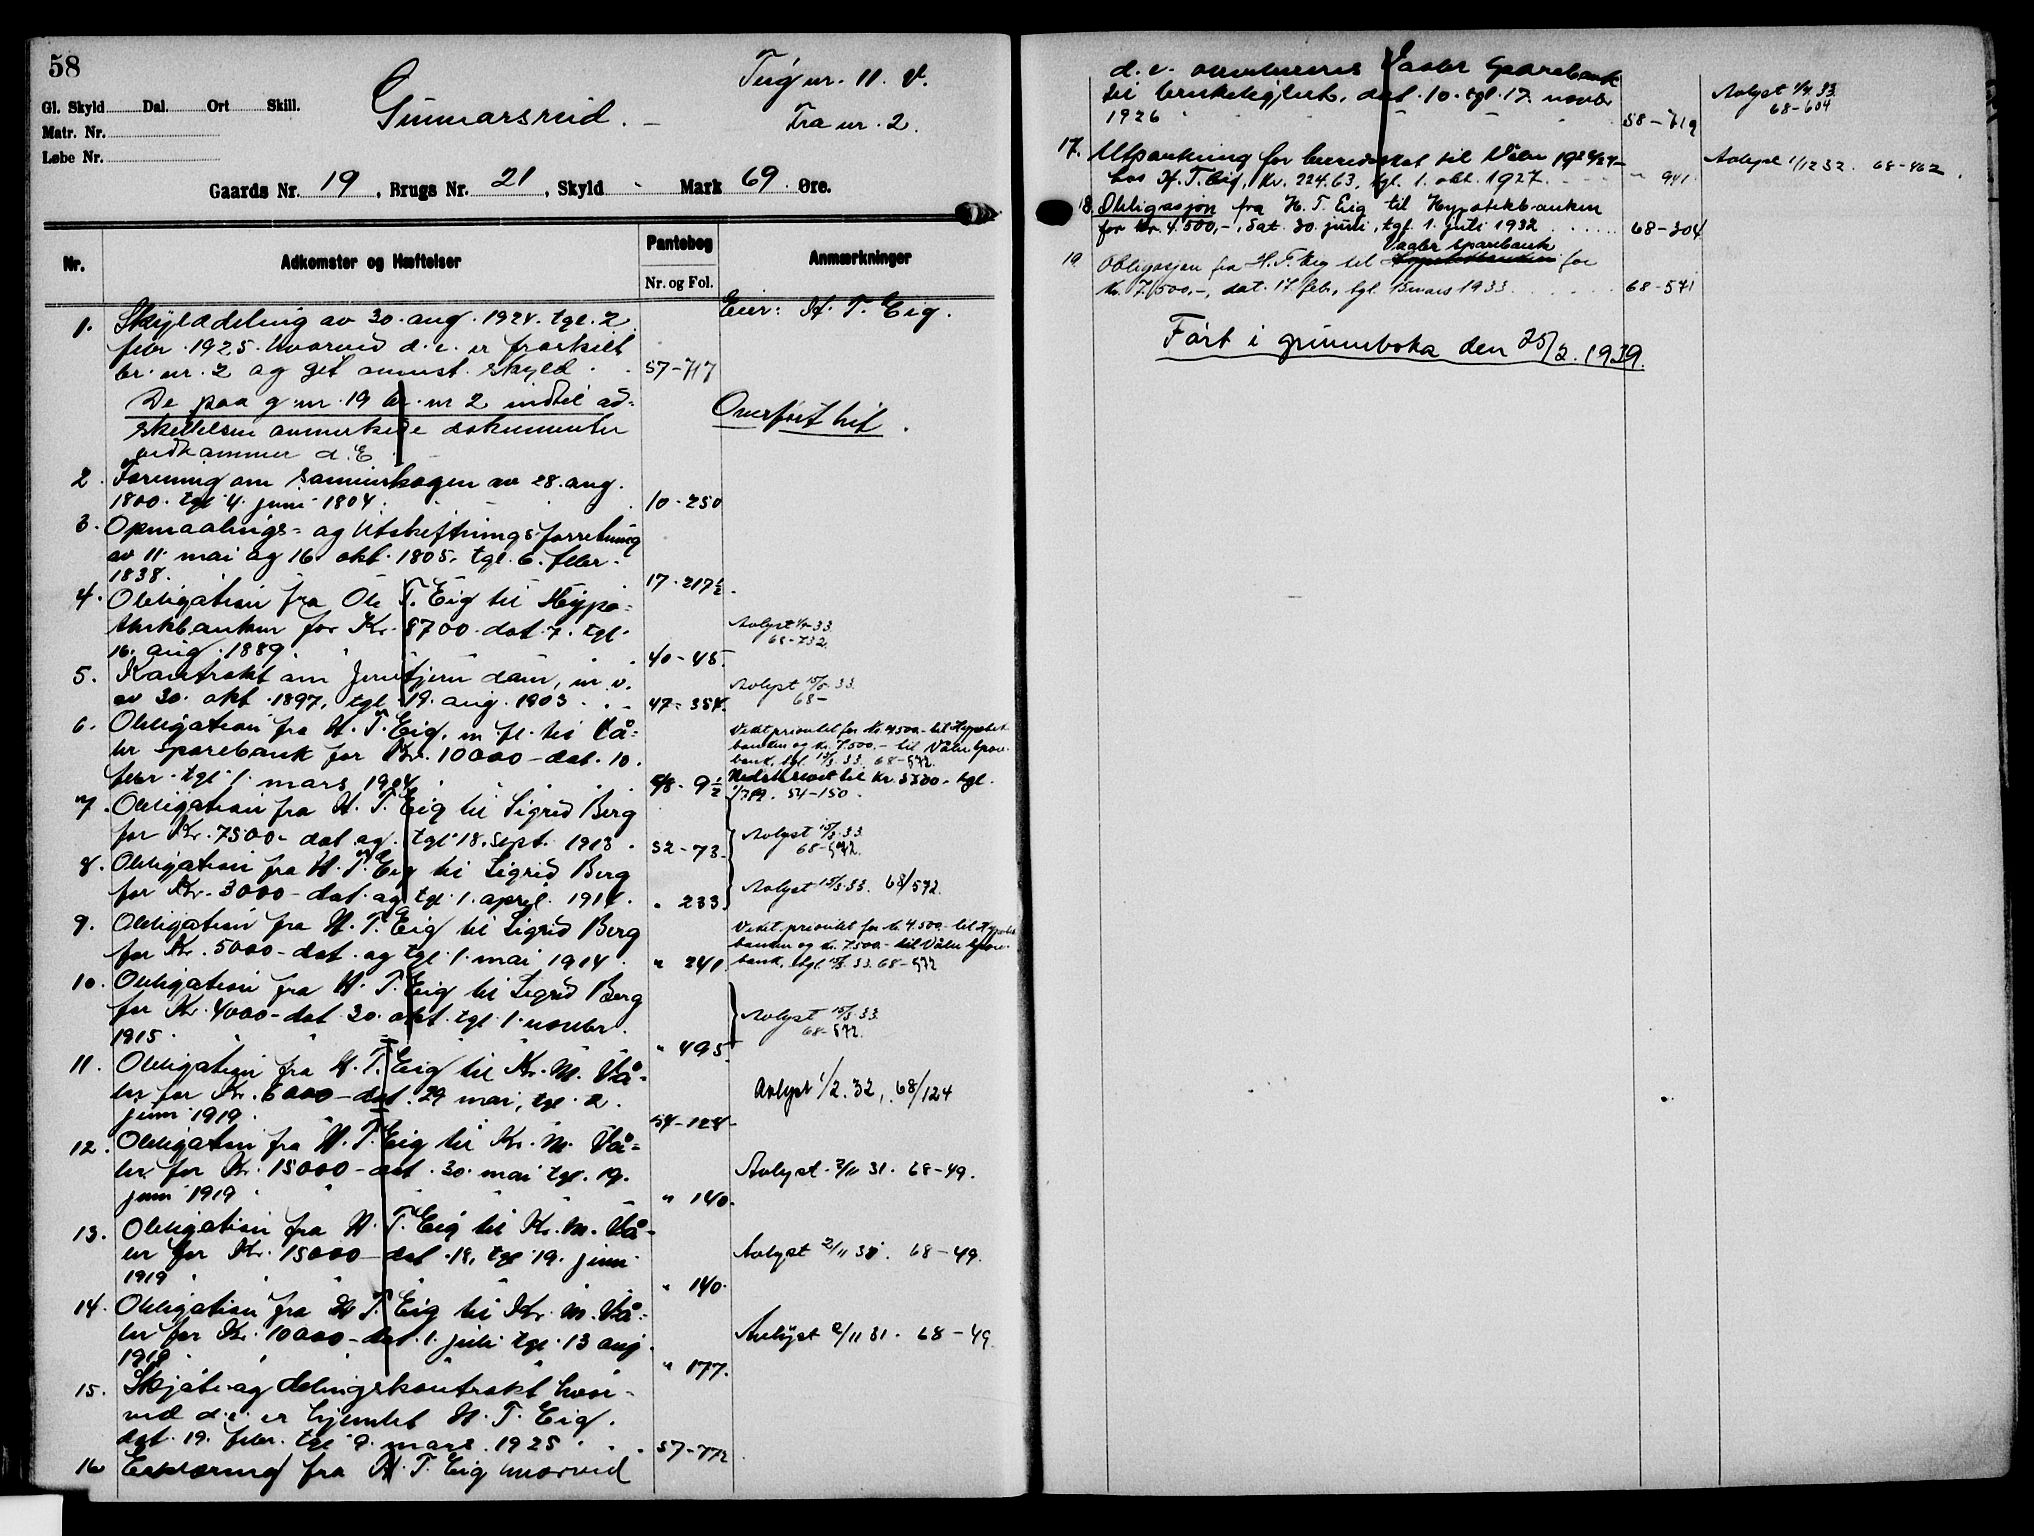 58
Teig nr. 11. V.
Gl. Skyld Dal. Ort Skill.
Gunnarsrud. -
Matr. Nr.
Fra nr. 2.
Løbe Nr.
Gaards Nr. 19, Brugs Nr. 21, Skyld - Mark 69 Øre.
Nr. Adkomster og Hæftelser Pantebog Anmærkninger
Nr. og Fol.
Eier: H. T. Eig.
1. Skylddeling av 30. aug. 1924. tgl. 2
febr. 1925. hvorved d.e. er fraskilt
br. nr. 2 og git anmst. skyld. 57-717
De paa g.nr. 19 br. nr 2 indtil ad=
skillelsen anmerkede dokumenter Overført hit.
vedkommer d. E.
2. Forening om sammenhogen av 28. aug.
1800. tgl 4. juni 1804. 10-250
3. Opmaalings- og Utskiftnings-forretning
av 11. mai og 16. okt. 1805. tgl. 6. febr.
1838. 17-217½.
4. Obligation fra Ole T. Eig til Hypo=
thekbanken for Kr. 8700. dat. 7. tgl. Avlyst 33
16. aug. 1889. 40-45. 68-732.
5. Kontrakt om dam, m v. Avlyst 15/3. 33.
av 30. okt. 1897, tgl. 19. aug. 1903. 47-354. 68-
6. Obligation fra H. T. Eig. m fl. til Vå= Vedt. prioritet for kr. 4500.- til Hypotek
ler Sparebank for Kr. 10000- dat. 10. banken og kr. 7.500.- til Våler Spare-
bank, tgl. 15/3. 33. 68-572.
febr. tgl. 1. mars 1904. 48-9½ Nedskrevet til kr. tgl.
54-150.
7. Obligation fra H. T. Eig til Sigrid Berg
for Kr. 7500- dat. og tgl. 18. sept. 1913. 52-73. Avlyst 15/3. 33.
68-572.
8. Obligation fra H. T. Eig til Sigrid Berg
for Kr. 3000- dat. og tgl. 1. april. 1914. " 233 Avlyst 15/3. 33. 68/572.
9. Obligation fra H. T. Eig til Sigrid Berg Vedt. prioritet for kr. 4.500.- til Hypotek
for Kr. 5000- dat. og tgl. 1. mai 1914. " 241. banken og kr. 7.500.- til Våler Spare-
bank, tgl. 15/3. 33. 68-572
10. Obligation fra H. T. Eig til Sigrid Berg
for Kr. 4000- dat. 30. okt. tgl. 1. novbr. Avlyst 15/3. 33.
1915. " 495 68-572.
11. Obligation fra H. T. Eig til Kr. M. Vå=
ler for Kr. 6000- dat. 29 mai, tgl. 2. Avlyst 1/2. 32, 68/124
juni 1919. 54-124
12. Obligation fra H. T. Eig til Kr. M. Vå=
ler for Kr. 15000- dat. 30. mai tgl. 19. Avlyst 2/11 31. 68-49.
juni 1919. " 140.
13. Obligation fra H. T. Eig til Kr. M. Vå=
ler for Kr. 15000- dat. 18, tgl. 19. juni Avlyst 2/11 31. 68-49.
1919. " 140.
14. Obligation fra H. T. Eig til Kr. M. Vå=
ler for Kr. 10000- dat. 1. juli tgl. 13 aug. Avlyst 2/11 31. 68-49.
1919. " 177.
15. Skjøte og delingskontrakt hvor-
ved d.e. er hjemlet H. T. Eig.
dat. 19. febr. tgl. 9. mars. 1925. 57-772
16 Erklæring fra H. T. Eig hvorved
d.e. Vaaler Sparebank
til brukelighet, dat. 10. tgl. 17. novbr. Avlyst 33
1926 58-719 68-604
17. Utpantning for til Våler
hos H. T. Eig, Kr. 224.63, tgl. 1. okt. 1927. " 941. Avlyst 1/12 32. 68-462.
18. Obligasjon fra H. T. Eig til Hypotekbanken
for kr. 4.500,-, dat. 30. juni, tgl. 1. juli 1932 68-304
Vaaler Sparebank
19 Obligasjon fra H. T. Eig til Hypotekbanken for
kr. 7.500,-, dat. 17. febr, tgl. 15 mars 1933. 68-571
Ført i grunnboka den 25/2. 1939.